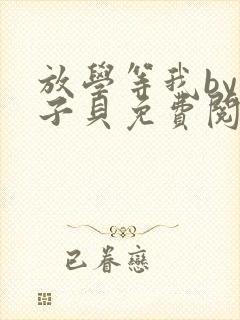 放學等我by
子貝免費閱
已眷戀